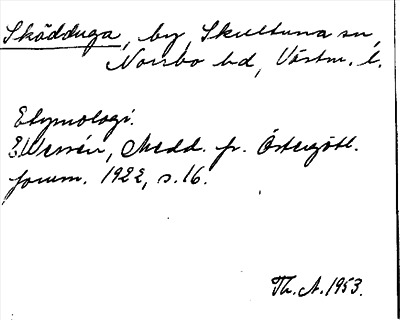 Skädduga, by, Skultuna sn,
Norrbo hd, Västm. l.
Etymologi.
EWessén, Medd. fr. Östergötl.
fornm. 1922, s. 16.
Th. A. 1953.